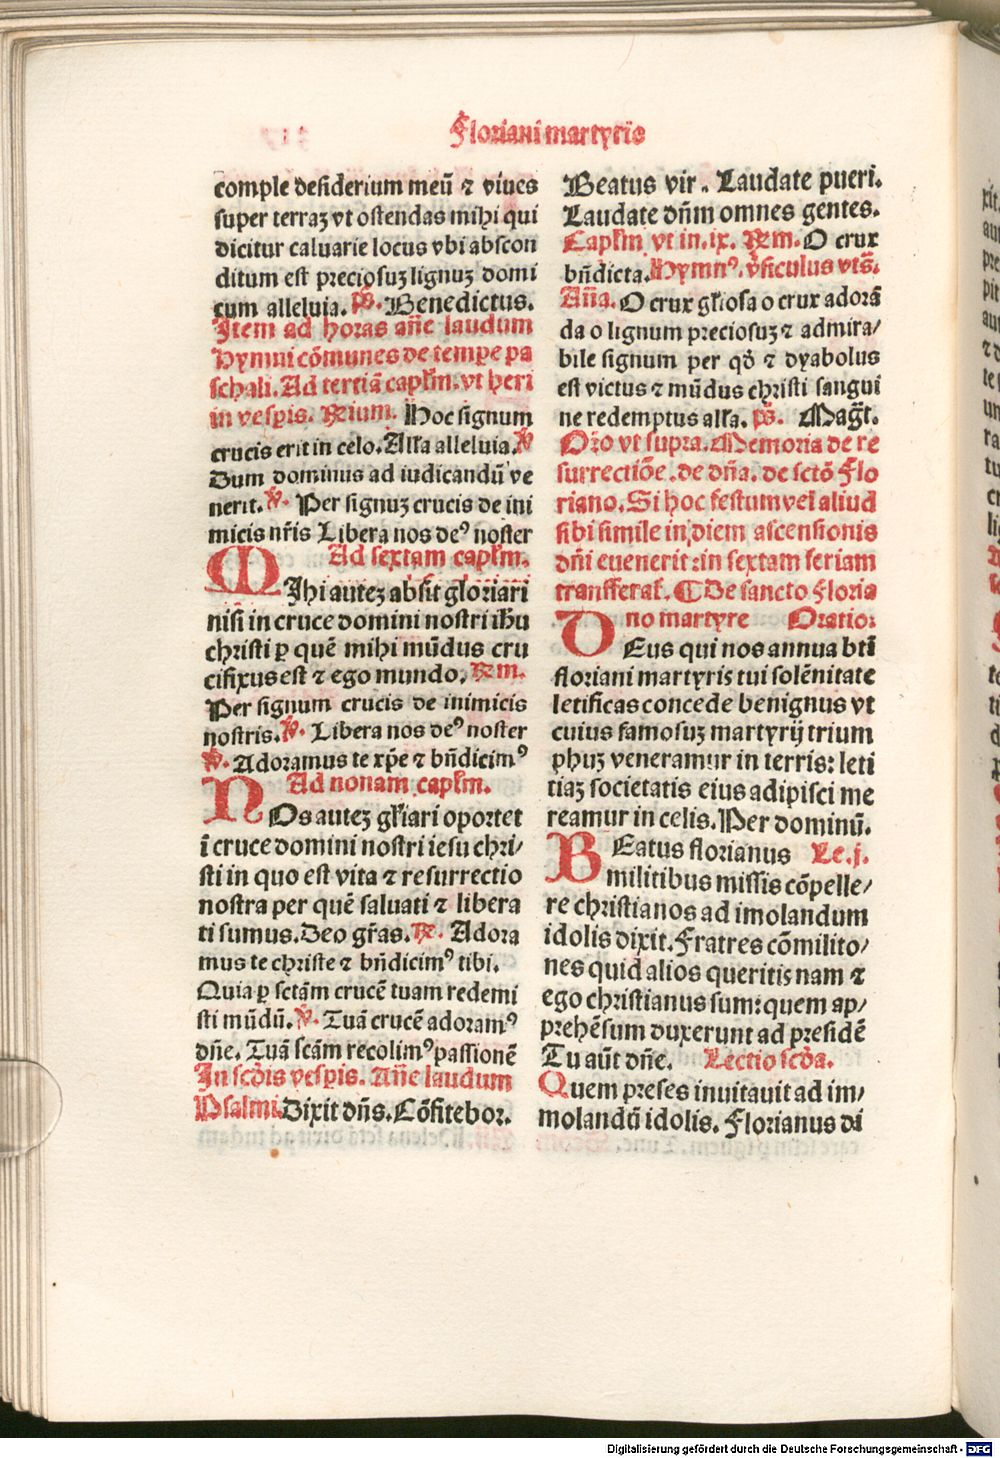 Floriani martyris
comple desiderium meū ⁊ viues
super terraꝫ vt ostendas mihi qui
dicitur caluarie locus vbi abscon
ditum est preciosuꝫ lignuꝫ domi
cum alleluia. p̄s. Benedictus.
Item ad horas añe laudum
Hymni cōmunes de tempe pa
schali. Ad tertiā capłm. vt heri
in vespis. Rium. Hoc signum
crucis erit in celo. Alla alleluia. ℣
Dum dominus ad iudicandū ve
nerit. ℣. Per signuꝫ crucis de ini
micis nr̄is Libera nos deꝰ noster
Ad sextam capłm.
MIhi auteꝫ absit gloriari
nisi in cruce domini nostri ihū
christi ꝑ quē mihi mūdus cru
cifixus est ⁊ ego mundo. Rm.
Per signum crucis de inimicis
nostris. ℣. Libera nos deꝰ noster
℣. Adoramus te xp̄e ⁊ bn̄dicimꝰ
Ad nonam capłm.
NOs auteꝫ gło̅iari oportet
ī cruce domini nostri iesu chri/
sti in quo est vita ⁊ resurrectio
nostra per quē saluati ⁊ libera
ti sumus. Deo gr̄as. ℟. Adora
mus te christe ⁊ bn̄dicimꝰ tibi.
Quia ꝑ sctām crucē tuam redemi
sti mūdū. ℣. Tuā crucē adoramꝰ
dn̄e. Tuā scām recolimꝰ passionē
In scd̄is vespis. Añe laudum
Psalmi. Dixit dn̄s. Cōfitebor.
Beatus vir. Laudate pueri.
Laudate dn̄m omnes gentes.
Capłm vt in. ix. Rm. O crux
bn̄dicta. Hymnꝰ. v̄siculus vts̄.
Aña. O crux głiosa o crux adorā
da o lignum preciosuꝫ ⁊ admira/
bile signum per qđ ⁊ dyabolus
est victus ⁊ mūdus christi sangui
ne redemptus alla. p̄s. Magt̄.
Or̄o vt supra. Memoria de re
surrectiōe. de dn̄a. de sctō Flo
riano. Si hoc festum vel aliud
sibi simile in diem ascensionis
dn̄i euenerit: in sextam feriam
transferat̄. ¶ De sancto Floria
no martyre Oratio:
DEus qui nos annua bt̄i
floriani martyris tui solēnitate
letificas concede benignus vt
cuius famosuꝫ martyrij trium
phuꝫ veneramur in terris: leti
tiaꝫ societatis eius adipisci me
reamur in celis. Per dominū.
BEatus florianus Le. j.
militibus missis cōpelle/
re christianos ad imolandum
idolis dixit. Fratres cōmilito/
nes quid alios queritis nam ⁊
ego christianus sum: quem ap/
prehēsum duxerunt ad presidē
Tu aūt dn̄e. Lectio scd̄a.
Quem preses inuitauit ad im/
molandū idolis. Florianus di
Digitalisierung gefördert durch die Deutsche Forschungsgemeinschaft - DFG